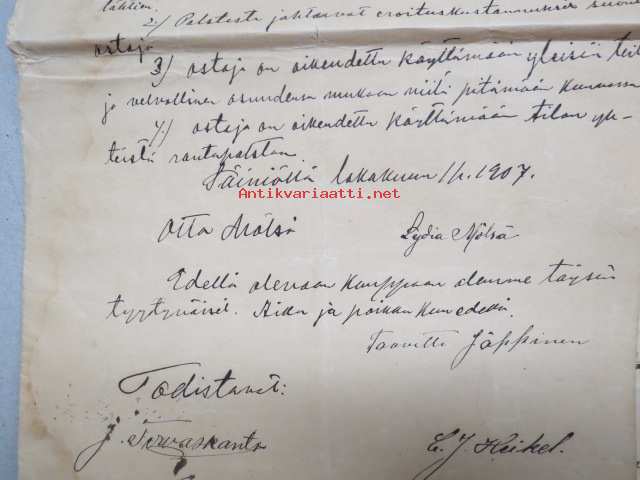 lähtien.
2.) Palstasta johtuvat eroituskustannukset suorittaa
ostaja
3) ostaja on oikeudettu käyttämään yleisiä teitä
ja velvollinen osuudensa mukaan niitä pitämään kunnossa
4.) ostaja on oikeudettu käyttämään tilan yh-
teistä rantapalstaa.
Säiniöllä lokakuun 1 p. 1907.
Antikvariaatti.net
Otto Mölsä Lydia Mölsä
Edellä olevaan kauppaan olemme täysin
tyytyväiset. Aika ja paikka kun edellä.
Taavetti Jäppinen
Todistavat:
J. Tervaskanto E. J. Heikel.